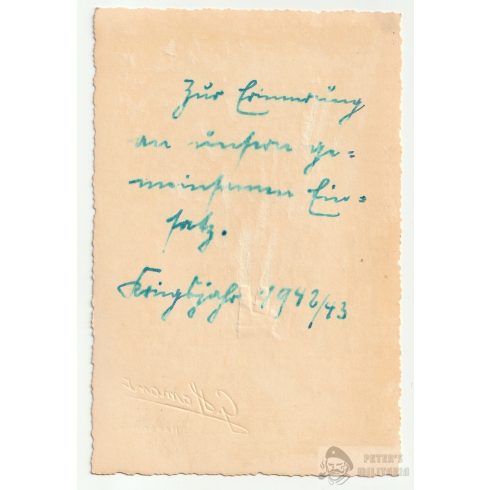 Zur Erinnerung
an unsern ge=
meinsamen Ein=
satz.
Kriegsjahr 1942/43
PETER'S
MILITARIA